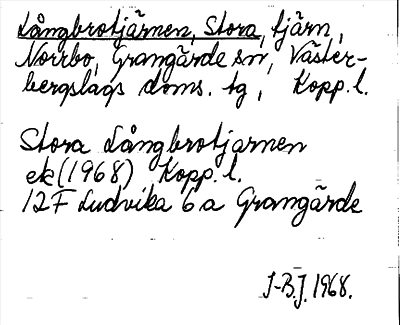 Långbrotjärnen, Stora, tjärn,
Norrbo, Grangärde sn, Väster-
bergslags doms. tg, Kopp. l.
Stora Långbrotjärnen
ek (1968) Kopp. l.
12F Ludvika 6a Grangärde
J-B.J. 1968.